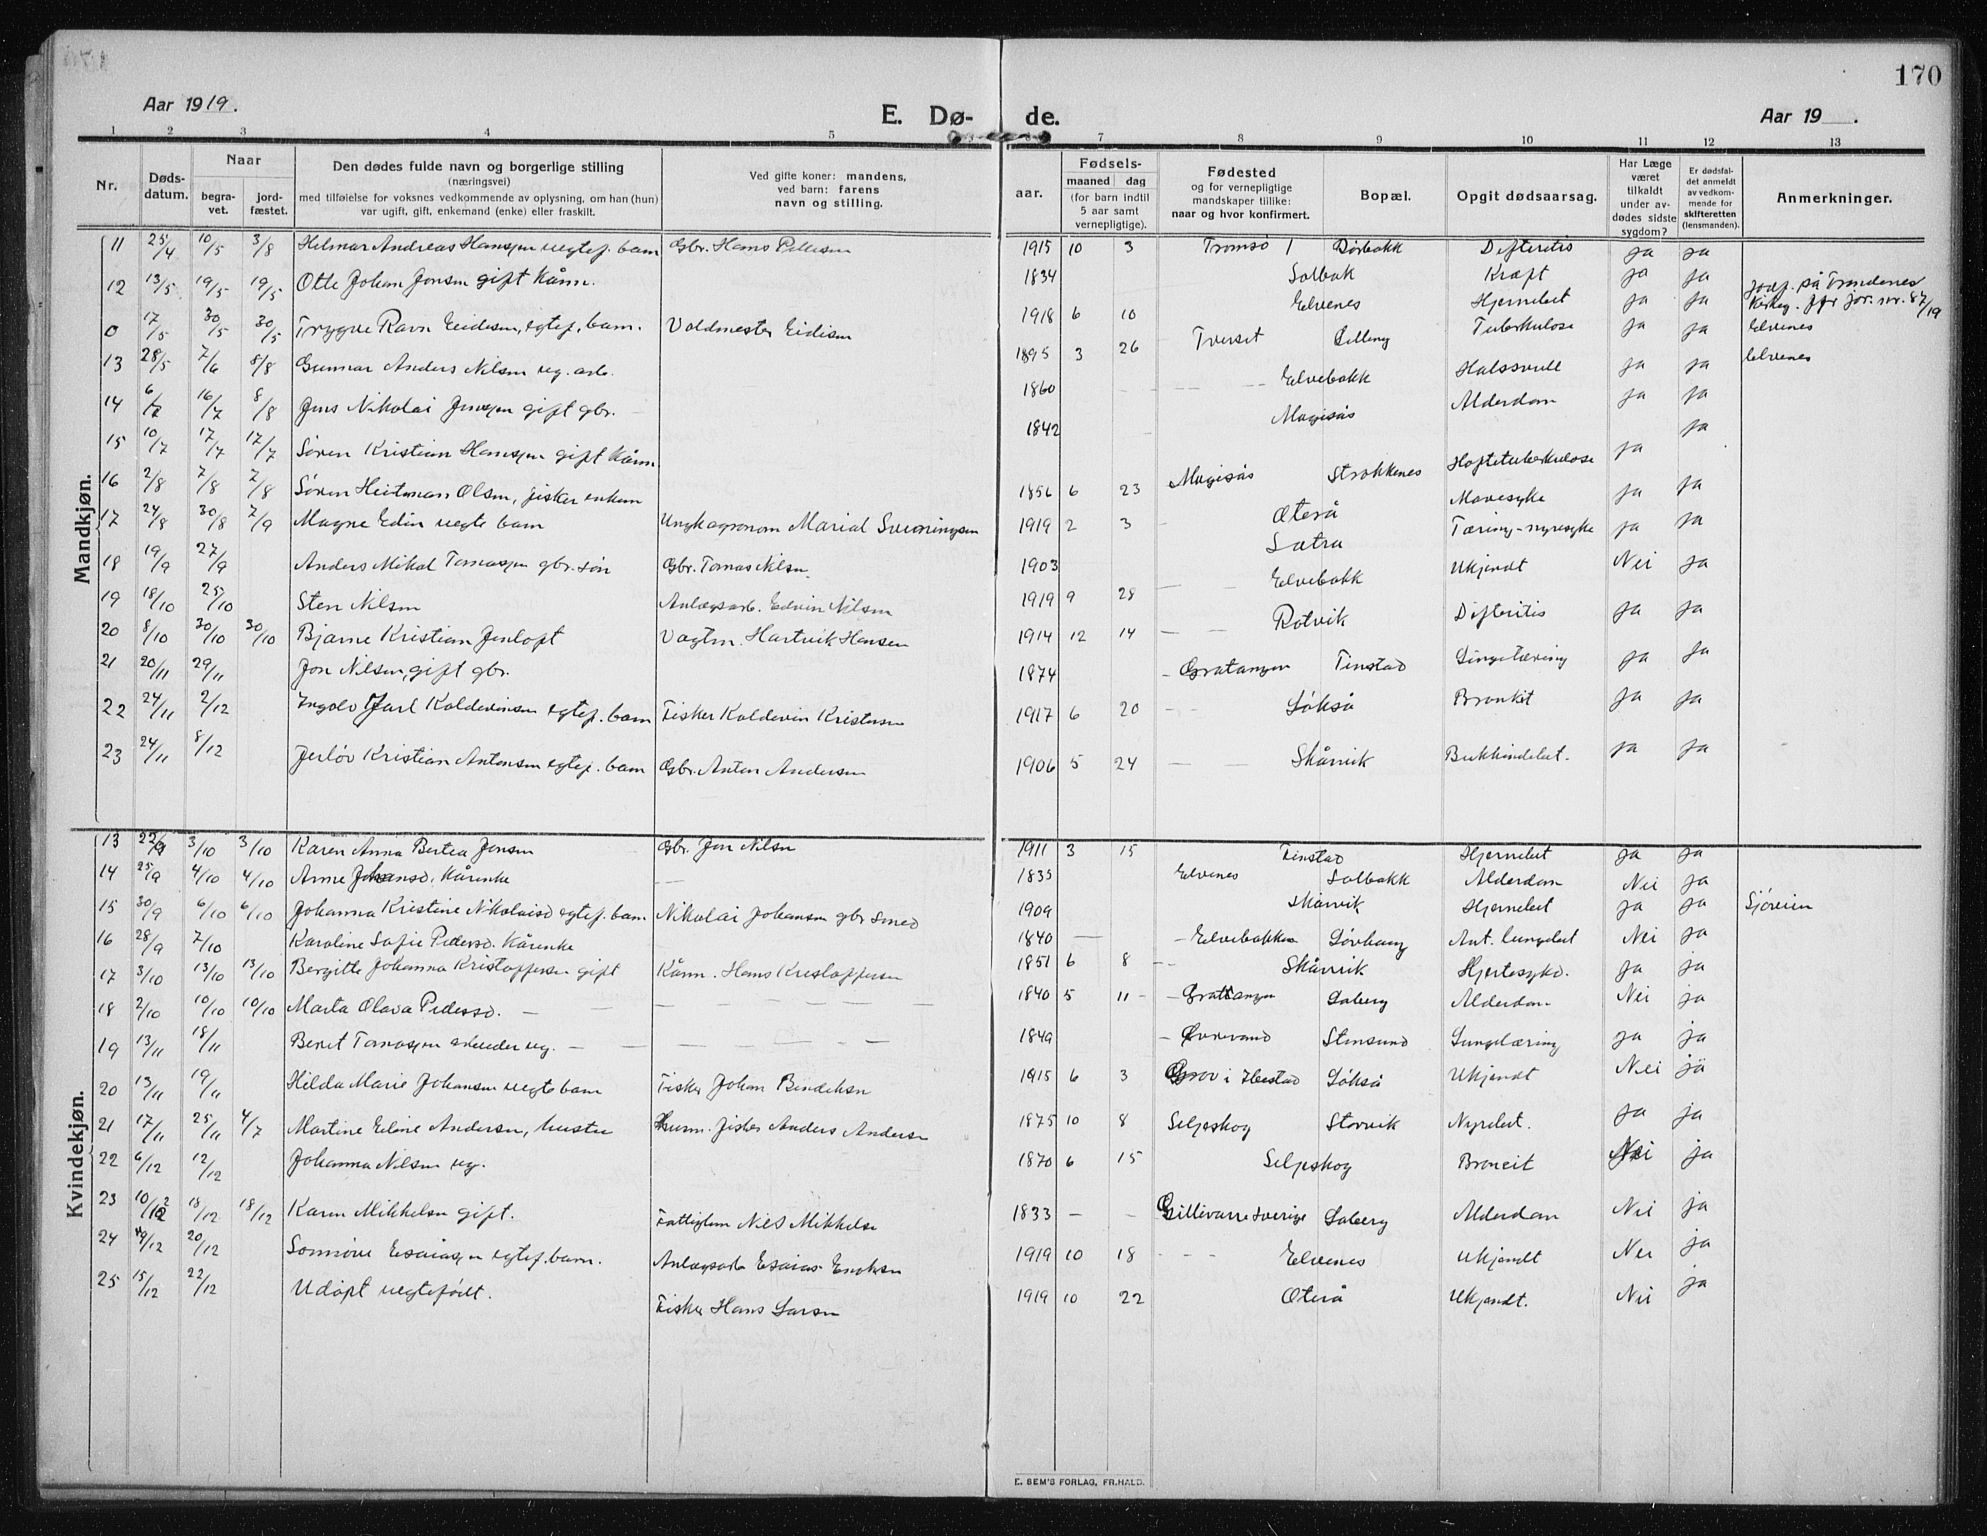 170
Aar 1919.
E. Dø- de.
Aar 19 .
1 2 3 4 5 6 7 8 9 10 11 12 13
Nr.
Døds-
datum.
Naar
begra-
vet.
jord-
fæstet.
Den dødes fulde navn og borgerlige stilling
(næringsvei)
med tilføielse for voksnes vedkommende av oplysning, om han (hun)
var ugift, gift, enkemand (enke) eller fraskilt.
Ved gifte koner: mandens,
ved barn: farens
navn og stilling.
aar.
Fødsels-
maaned dag
(for barn indtil
5 aar samt
vernepligtige).
Fødested
og for vernepligtige
mandskaper tillike:
naar og hvor konfirmert.
Bopæl.
Opgit dødsaarsag.
Har Læge
været
tilkaldt
under av-
dødes sidste
sygdom?
Er dødsfal-
det anmeldt
av vedkom-
mende for
skifteretten
(lensmanden).
Anmerkninger.
Mandkjøn.
11 25/4 10/5 3/8 Helmar Andreas Hansen uegtef. barn Gbr. Hans Pettersen 1915 10 3 Tromsø Dørbakk Difteritis ja ja
12 13/5 19/5 19/5 Otte Johan Jonsen gift kårm. 1834 Solbak Kræft ja ja
0 17/5 30/5 30/5 Trygve Ravn Eidesen, egtef. barn. Voldmester Eidisen 1918 6 10 Elvenes Hjernebet ja ja Elvenes
13 28/5 7/6 8/8 Gunnar Anders Nilsen ug. arb. 1895 3 26 Tverset Tuberkulose ja ja Elvenes
14 6/7 16/7 8/8 Jens Nikolai Jensen gift gbr. 1860 Elvebakk Halssvull ja ja
15 10/7 17/7 17/7 Søren Kristian Hansen gift kårm 1842 Magisås Alderdom ja ja
16 2/8 7/8 7/8 Søren Heitman Olsen, fisker enkem 1856 6 23 Magisås Strokkenes Hoftetuberkulose ja ja
17 24/8 30/8 7/9 Magne Edin uegte barn Ungk agronom Marial Sveiningsen 1919 2 3 Oterå Mavesyke ja ja
18 19/9 27/9 Anders Mikal Tomassen gbr. søn Gbr. Tomas Nilsen. 1903 Sætra Tæring-nyresyke Nei ja
19 18/10 25/10 Sten Nilsen Anlægsarb. Edvin Nilsen 1919 9 28 Elvebakk Ukjendt ja ja
20 8/10 30/10 30/10 Bjarne Kristian Jenloft Vagtm. Hartvik Hansen 1914 12 14 Rotvik Difteritis ja ja
21 20/11 29/11 Jon Nilsen, gift gbr. 1874 Gratangen Tinstad Lungetæring ja ja
22 24/11 2/12 Ingolv Jarl Koldevinsen egtef. barn Fisker Koldevin Kristensen 1917 6 20 Løkså Bronkit ja ja
23 24/11 8/12 Jerløv Kristian Antonsen egtef. barn Gbr. Anton Andersen 1906 5 24 Skårvik Bukhindebet. ja ja
Kvindekjøn.
13 22/9 3/10 3/10 Karen Anna Bertea Jensen Gbr. Jon Nilsen 1911 3 15 Tinstad Hjernebet ja ja
14 25/9 4/10 4/10 Anne Johansd. Kårenke 1835 Elvenes Solbakk Alderdom Nei ja
15 30/9 6/10 6/10 Johanna Kristine Nikolaisd egtef. barn Nikolai Johansen gbr smed 1909 Skårvik Hjernebet ja ja Sjøveien
16 28/9 7/10 Karoline Sofie Pedersd. Kårenke 1840 Elvebakken Løvhaug Ant. lungebet Nei ja
17 3/10 13/10 13/10 Bergitte Johanna Kristoffersen gift Kårm. Hans Kristoffersen 1851 6 8 Skårvik Hjertesykd. ja ja
18 2/10 10/10 10/10 Marta Olava Pedersd. 1840 5 11 Grattangen Soberg Alderdom Nei ja
19 13/11 18/11 Beret Tomassen ug. 1849 Stensund Lungetæring ja ja
20 13/11 19/11 Hilda Marie Johansen uegte barn Fisker Johan Bendiksen 1915 6 3 Grov i Ibestad Løkså Ukjendt Nei ja
21 17/11 25/11 4/7 Martine Eline Andersen, hustru fisker Anders Andersen 1875 10 8 Seljeskog Storvik Nyrebet. ja ja
22 6/12 12/12 Johanna Nilsen ug. 1870 6 15 Seljeskog Broncit Nei ja
23 10/12 18/12 18/12 Karen Mikkelsen gift. Fattiglem Nils Mikkelsen 1833 Gillivarre Sverige Soberg Alderdom Nei ja
24 /12 20/12 Esaiassen egtef. barn. Anlægsarb Esaias Enoksen 1919 10 18 Elvenes Ukjendt Nei ja
25 15/12 22/12 Udøpt uegtefødt. Fisker Hans Larsen 1919 10 22 Oterå Ukjendt. Nei ja
E. SEM'S FORLAG, FR.HALD.